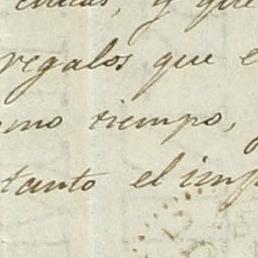 y que
regalos que e
omo tiempo,
tanto el imp